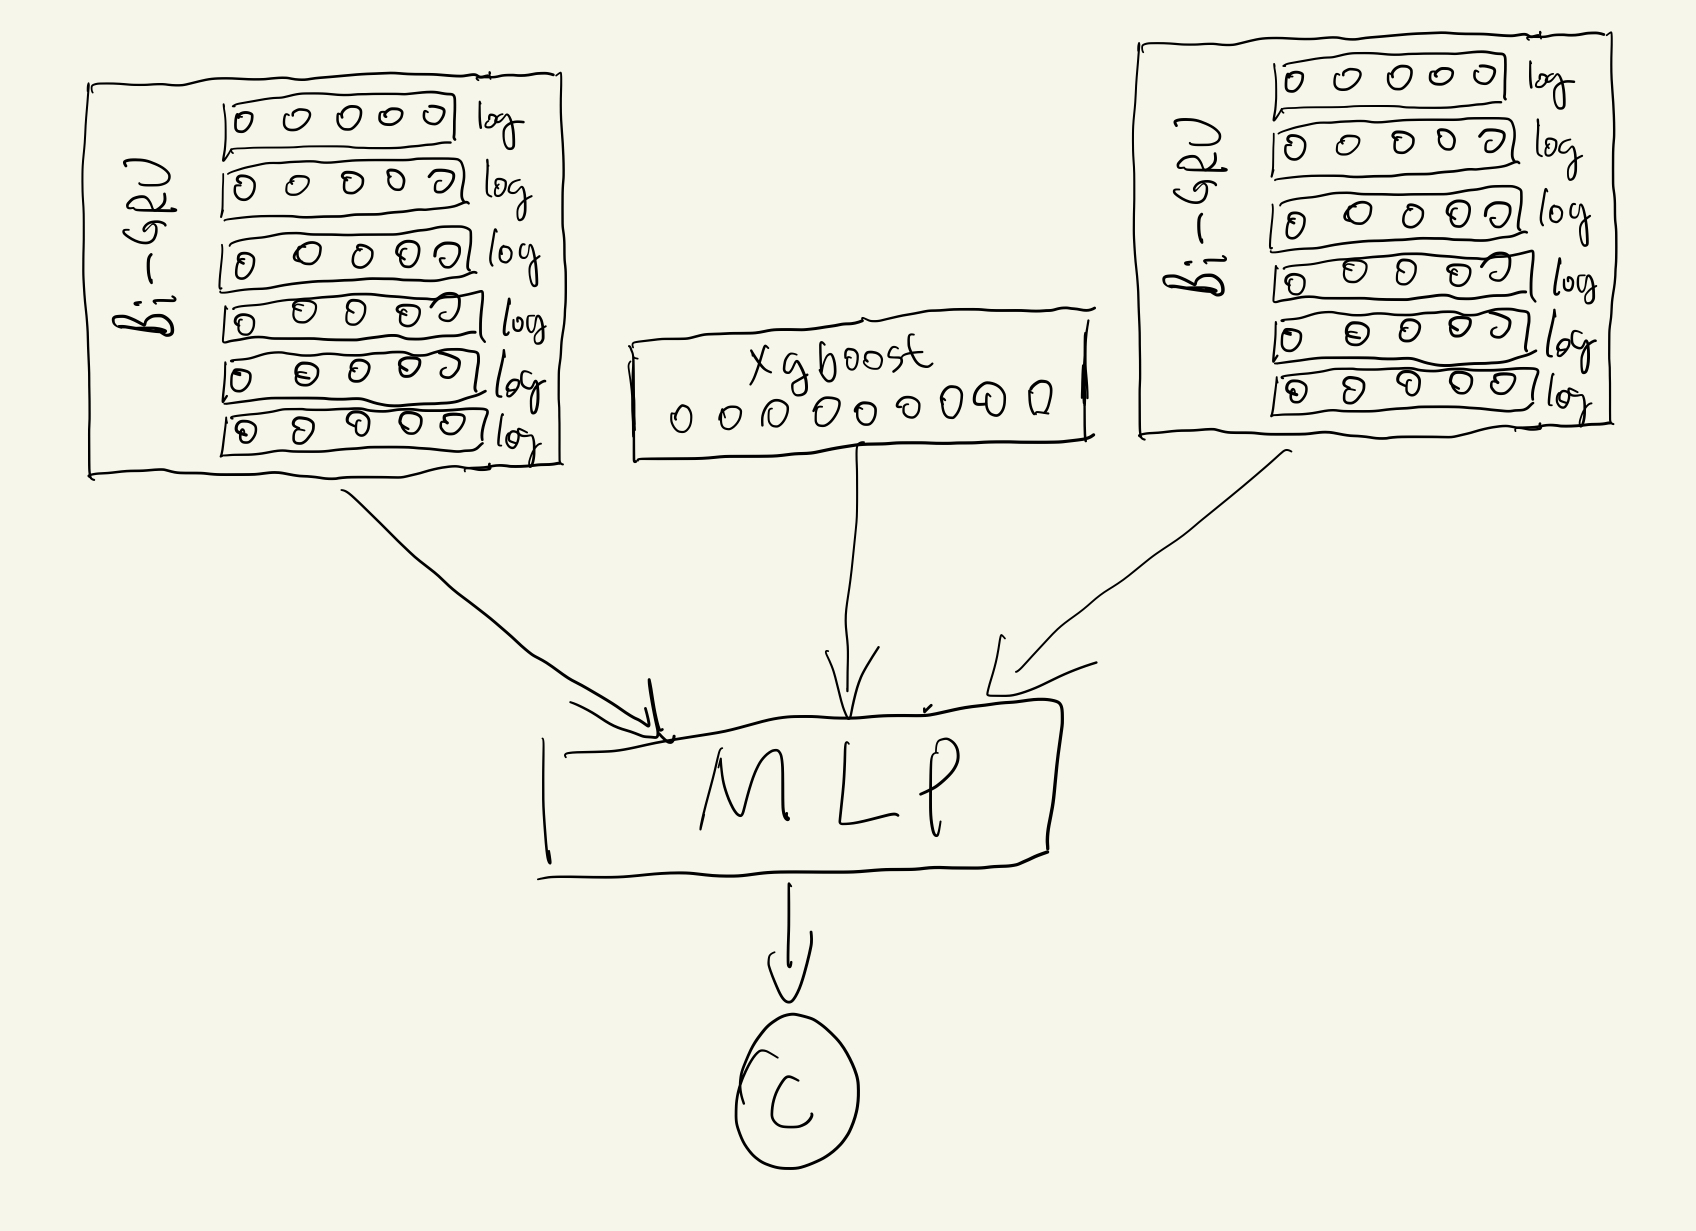 Bi-GRU
log
log
log
log
log
log
xgboost
Bi-GRU
log
log
log
log
log
log
MLP
C